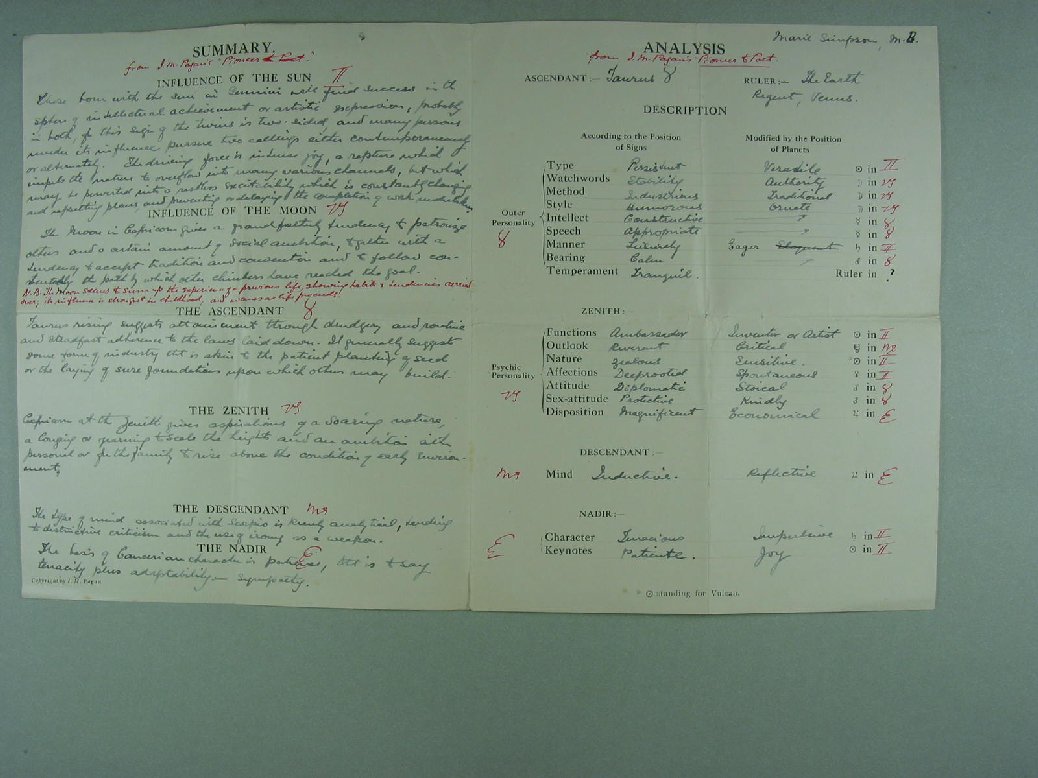 SUMMARY.
from I. M. Pagan's "Pioneer to Poet."
INFLUENCE OF THE SUN ♊
Those born with the sun in Gemini will find success in the
sphere of intellectual achievement or artistic expression, probably
in both, for this sign of the twins is two-sided and many persons
under its influence pursue two callings either contemporaneously
or alternately. The driving force is intense joy, a rapture which
impels the nature to overflow into many various channels, but which
may be perverted into a restless excitability which is constantly changing
and upsetting plans and preventing or delaying the completion of work undertaken.
INFLUENCE OF THE MOON ♑
The Moon in Capricorn gives a grandfatherly tendency to patronize
others and a certain amount of social ambition, together with a
tendency to accept tradition and convention and to follow con-
tentedly the path by which other climbers have reached the goal.
N.B. The Moon seems to sum up the experience of previous life, showing habits & tendencies carried
over; its influence is strongest in childhood, and wanes as life proceeds!
THE ASCENDANT ♉
Taurus rising suggests attainment through drudgery and routine
and steadfast adherence to the laws laid down. It generally suggests
some form of industry that is akin to the patient planting of seed
or the laying of sure foundations upon which others may build.
THE ZENITH ♑
Capricorn at the Zenith gives aspirations of a soaring nature,
a longing or yearning to scale the heights and an ambition either
personal or for the family to rise above the condition of early environ-
ment.
THE DESCENDANT ♏
The type of mind associated with Scorpio is keenly analytical, tending
to destructive criticism and the use of irony as a weapon.
THE NADIR
The basis of Cancerian character is patience, that is to say
tenacity plus adaptability — sympathy.
Copyright by I. M. Pagan
Marie Simpson, M.B.
ANALYSIS
from I. M. Pagan's "Pioneer to Poet.
ASCENDANT :— Taurus ♉ RULER :— The Earth
Regent, Venus.
DESCRIPTION
According to the Position of Signs
Modified by the Position of Planets
Outer Personality ♉
Type Persistent Versatile ☉ in ♊
Watchwords Stability Authority ☽ in ♑
Method Industrious Traditional ☽ in ♑
Style Humorous Ornate ☽ in ♑
Intellect Constructive ☿ in ♉
Speech Appropriate ☿ in ♉
Manner Leisurely Eager Eloquent in ♊
Bearing Calm in ♉
Temperament Tranquil. Ruler in ?
ZENITH :—
Psychic Personality ♑
Functions Ambassador Inventor or Artist ☉ in ♊
Outlook Reverent Critical in ♏
Nature Zealous Sensitive ☉ in ♊
Affections Deeprooted Spontaneous ♀ in ♊
Attitude Diplomatic Stoical in ♉
Sex-attitude Protective Kindly in ♉
Disposition Magnificent Economical in
DESCENDANT :—
♏ Mind Inductive. Reflective in
NADIR :—
Character Tenacious Impulsive in ♊
Keynotes Patience. Joy ☉ in ♊
standing for Vulcan.